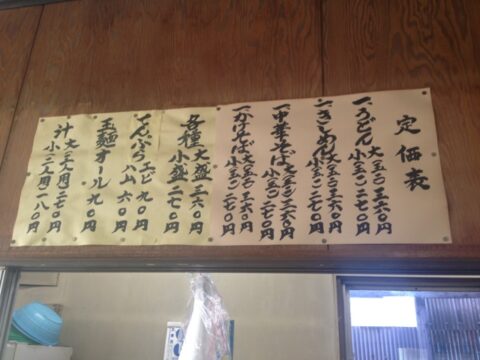 定価表
一、うどん 大(二玉) 三六〇円
小(一玉) 二七〇円
一、きしめん 大(二玉) 三六〇円
小(一玉) 二七〇円
一、中華そば 大(二玉) 三六〇円
小(一玉) 二七〇円
一、かけそば 大(二玉) 三六〇円
小(一玉) 二七〇円
各種 大盛 三六〇円
小盛 二七〇円
てんぷら エビ 九〇円
ハム 六〇円
玉麺オール 九〇円
汁 大 二七〇円
小 一八〇円